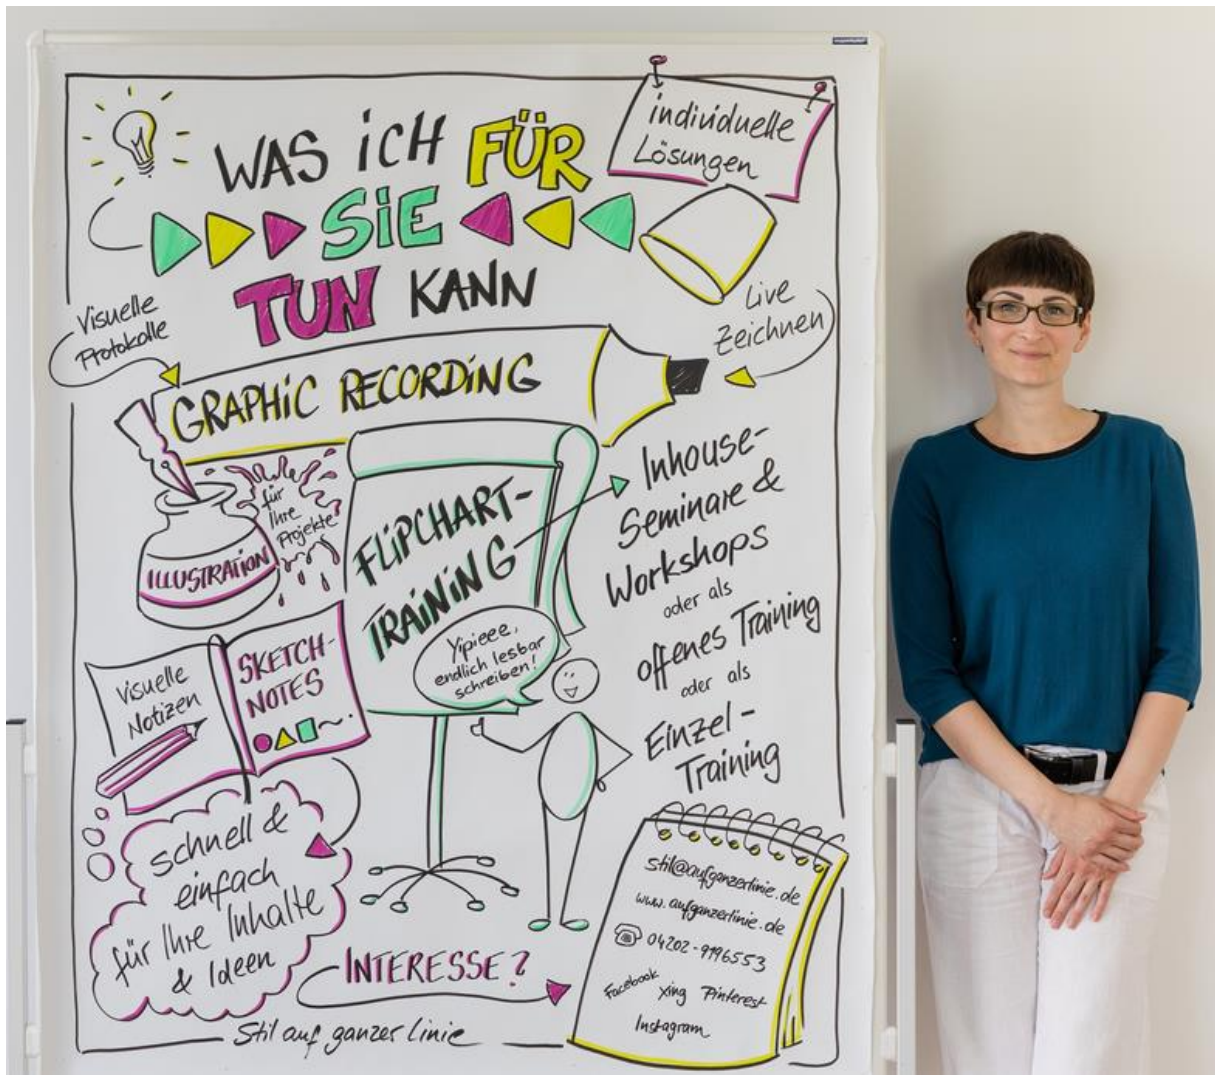 WAS iCH FÜR
SiE
TUN KANN
individuelle
Lösungen
Visuelle
Protokolle
Live
Zeichnen
GRAPHiC RECORDiNG
für
Ihre
Projekte
ILLUSTRATiON
FLiPCHART-
TRAiNiNG
Inhouse-
Seminare &
Workshops
oder als
offenes Training
oder als
Einzel-
Training
Yipieee,
endlich lesbar
schreiben!
Visuelle
Notizen
SKETCH-
NOTES
schnell &
einfach
für Ihre Inhalte
& Ideen
INTERESSE?
stil@aufganzerlinie.de
www.aufganzerlinie.de
04202-9196553
Facebook Xing Pinterest
Instagram
Stil auf ganzer Linie